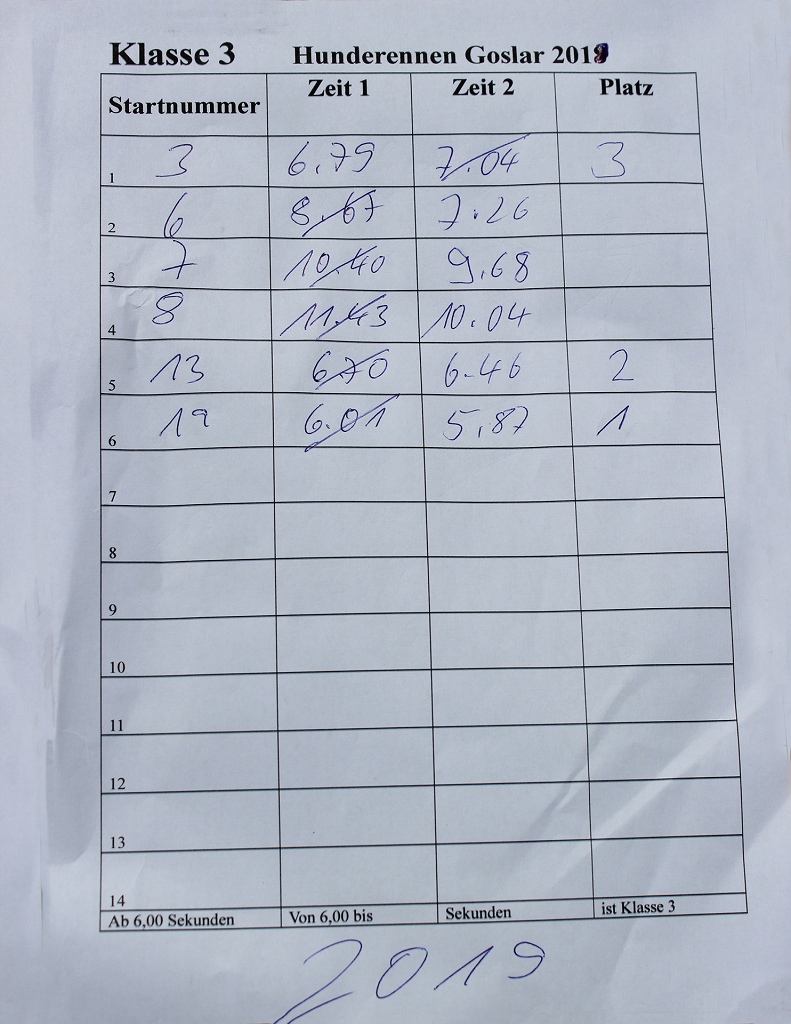 Klasse 3 Hunderennen Goslar 2019
Startnummer Zeit 1 Zeit 2 Platz
1 3 6.79 7.04 3
2 6 8.67 7.26
3 7 10.40 9.68
4 8 11.43 10.04
5 13 670 6.46 2
6 19 6.01 5.87 1
7
8
9
10
11
12
13
14
Ab 6,00 Sekunden Von 6,00 bis Sekunden ist Klasse 3
2019